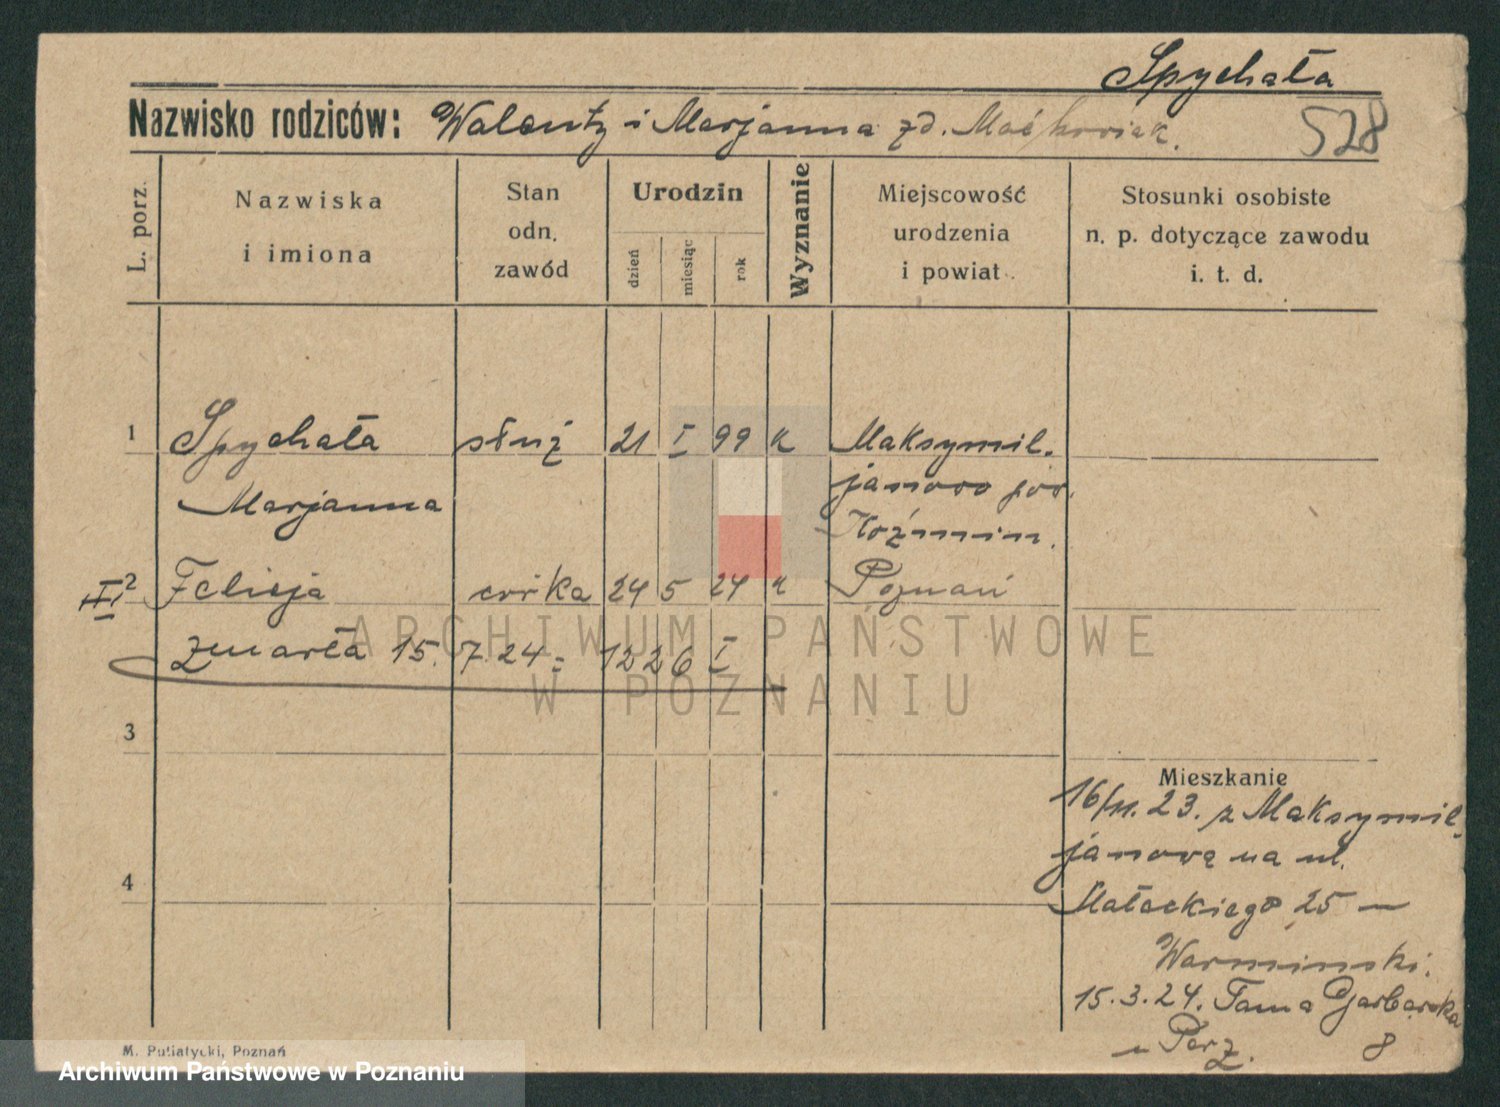 Spychała
Nazwisko rodziców: Walenty i Marjanna zd. Maćkowiak.
528
L. porz.
Nazwiska
i imiona
Stan
odn.
zawód
Urodzin
dzień
miesiąc
rok
Wyznanie
Miejscowość
urodzenia
i powiat
Stosunki osobiste
n. p. dotyczące zawodu
i. t. d.
1 Spychała służ 21 I 99 k Maksymil-
Marjanna janowo pow.
Koźmin.
2 Felicja córka 24 5 24 k Poznań
zmarła 15. 7. 24 = 1226 I
3
4
Mieszkanie
16/11. 23. z Maksymil-
janowa na ul.
Małeckiego 25 —
Warminski.
15.3.24. Tama Garbarska
8
M. Putiatycki, Poznań
ARCHIWUM PAŃSTWOWE
W POZNANIU
Archiwum Państwowe w Poznaniu